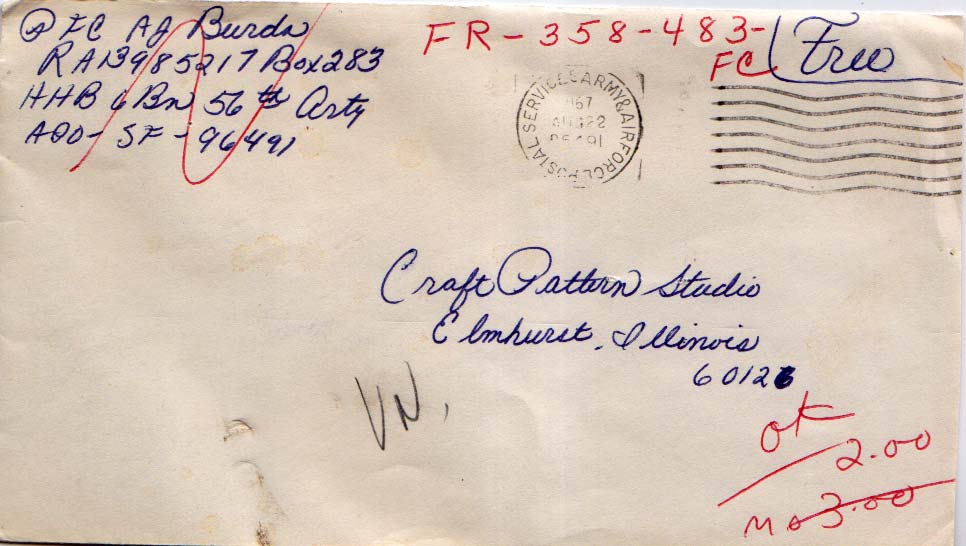 PFC AJ Burda
RA13985217 Box 283
HHB 6 Bn 56th Arty
APO - SF - 96491
FR-358-483-
FC
Free
POSTAL SERVICE ARMY & AIR FORCE
1967
AUG 22
Craft Pattern Studio
Elmhurst, Illinois
60126
VN.
OK
2.00
MO 3.00